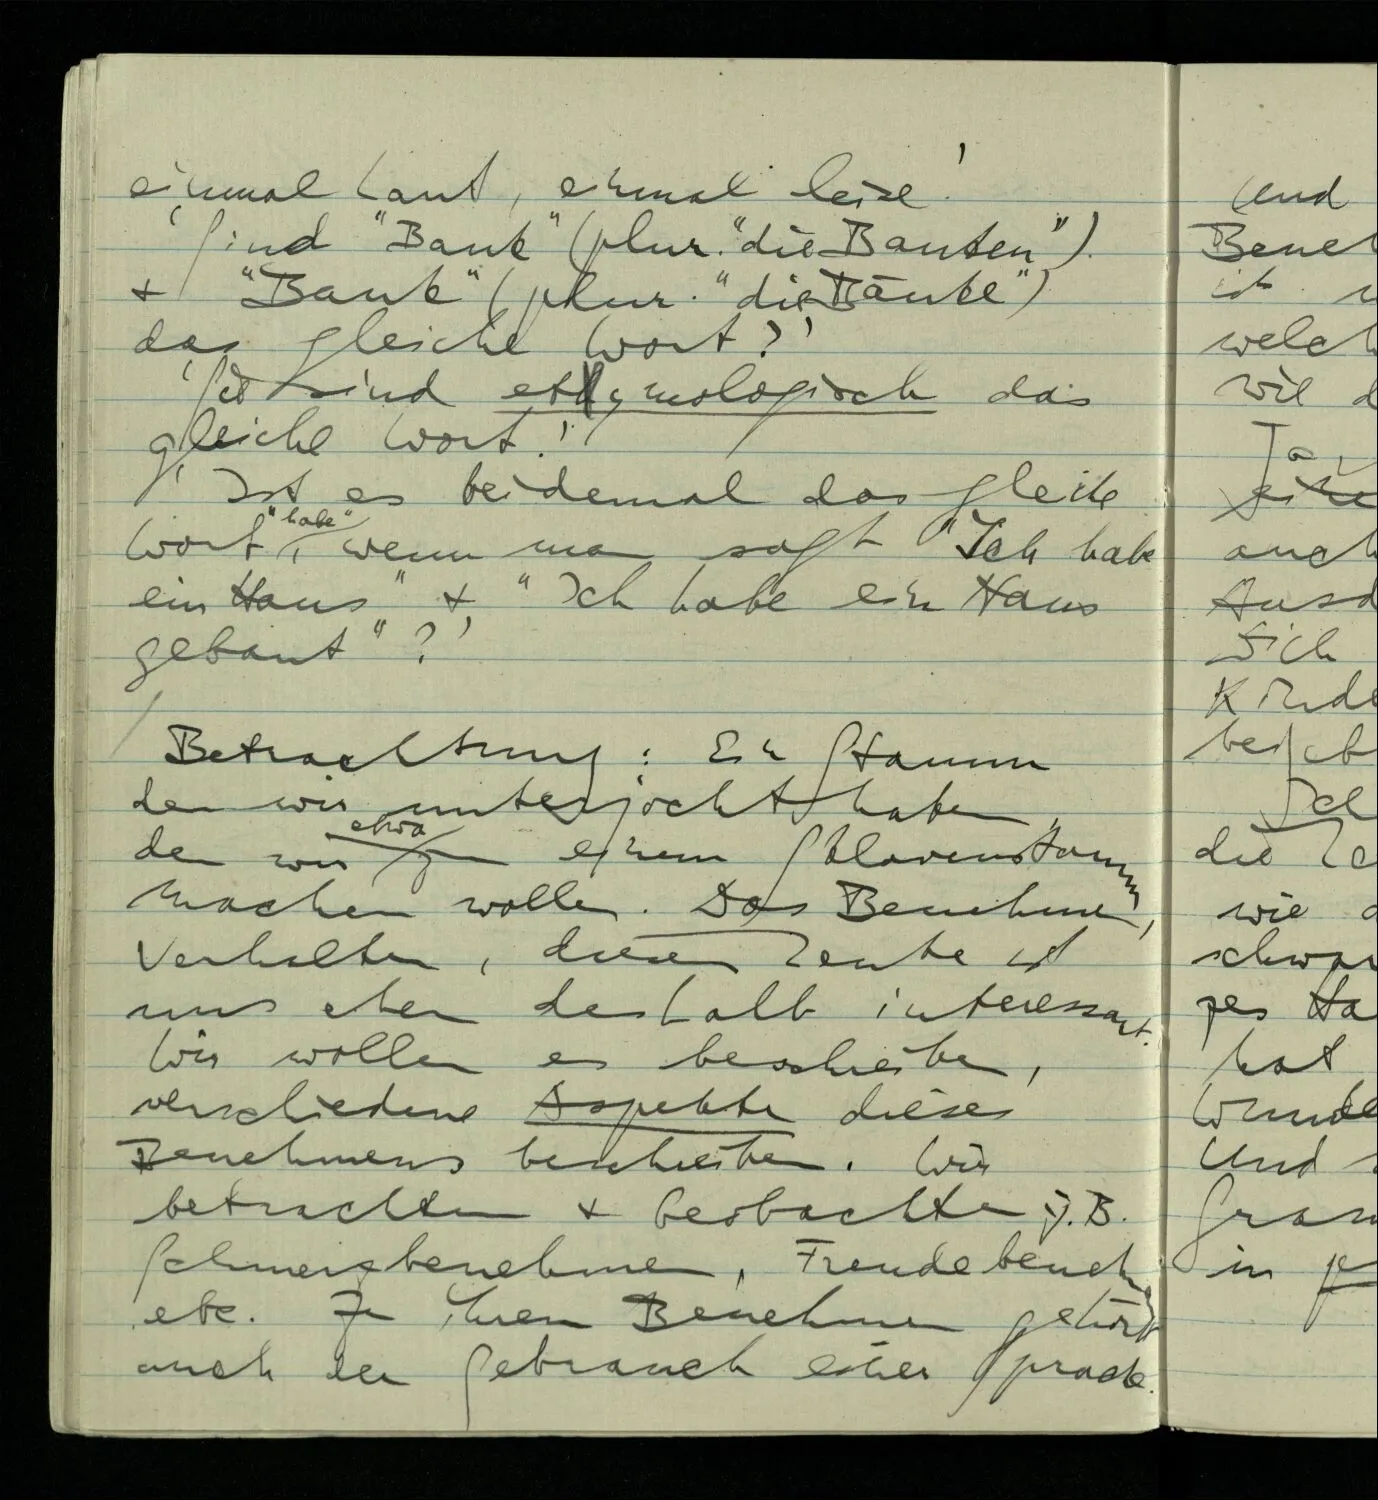 einmal laut, einmal leise.'
'Sind "Bank" (plur. "die Banken")
+ "Bank" (plur. "die Bänke")
das gleiche Wort?'
'Sie sind etymologisch das
gleiche Wort.'
'Ist es beidemal das gleiche
Wort "habe", wenn man sagt "Ich habe
ein Haus" + "Ich habe ein Haus
gebaut"?'
/
Betrachtung: Ein Stamm
den wir unterjocht haben,
den wir etwa zu einem Sklavenstamm
machen wollen. Das Benehmen,
Verhalten, dieser Leute ist
uns eben deshalb interessant.
Wir wollen es beschreiben,
verschiedene Aspekte dieses
Benehmens beschreiben. Wir
betrachten + beobachten z.B.
Schmerzbenehmen, Freudebenehmen
etc. Zu ihrem Benehmen gehört
auch der Gebrauch einer Sprache.
Und
Beneh
ist
welch
wie d
Ja,
auch
Ausd
sich
Kinde
die
wie
schwar
zes Ha
hat
Wunde
Und
Gram
in